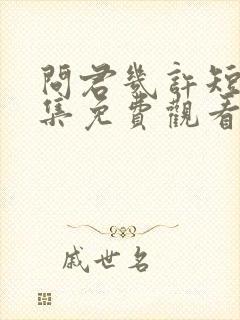 問君幾許短
集免費觀看
戚世名